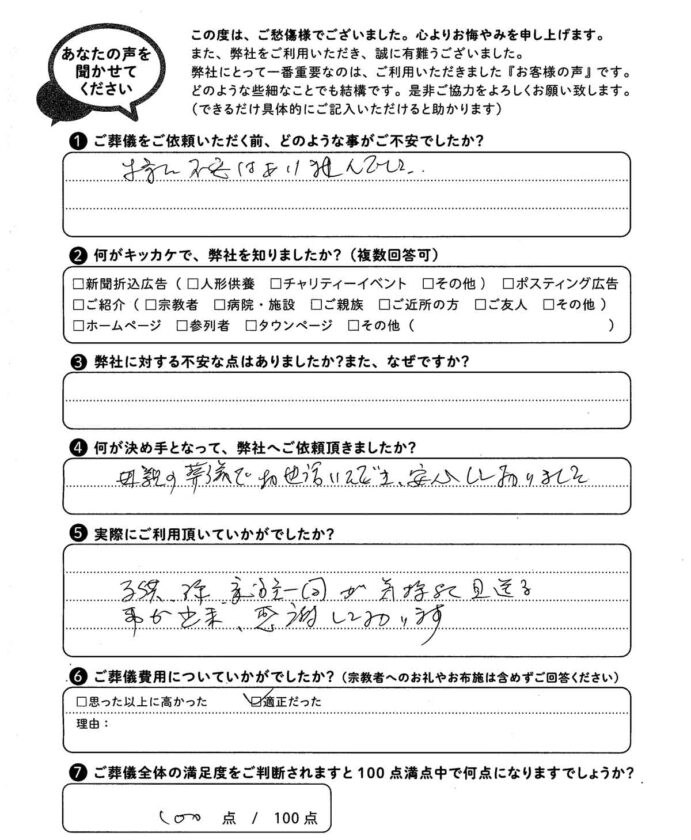 あなたの声を
聞かせて
ください
この度は、ご愁傷様でございました。心よりお悔やみを申し上げます。
また、弊社をご利用いただき、誠に有難うございました。
弊社にとって一番重要なのは、ご利用いただきました『お客様の声』です。
どのような些細なことでも結構です。是非ご協力をよろしくお願い致します。
（できるだけ具体的にご記入いただけると助かります）
❶ ご葬儀をご依頼いただく前、どのような事がご不安でしたか？
特に不安はありませんでした。
❷ 何がキッカケで、弊社を知りましたか？（複数回答可）
□新聞折込広告（ □人形供養　□チャリティーイベント　□その他 ）　□ポスティング広告
□ご紹介（ □宗教者　□病院・施設　□ご親族　□ご近所の方　□ご友人　□その他 ）
□ホームページ　□参列者　□タウンページ　□その他（　　　　　）
❸ 弊社に対する不安な点はありましたか？また、なぜですか？
❹ 何が決め手となって、弊社へご依頼頂きましたか？
母親の葬儀でお世話いただき、安心しておりました
❺ 実際にご利用頂いていかがでしたか？
子供、孫、家族一同が気持よく見送る
事が出来、感謝しております
❻ ご葬儀費用についていかがでしたか？（宗教者へのお礼やお布施は含めずご回答ください）
□思った以上に高かった　☑適正だった
理由：
❼ ご葬儀全体の満足度をご判断されますと100点満点中で何点になりますでしょうか？
100 点 / 100点